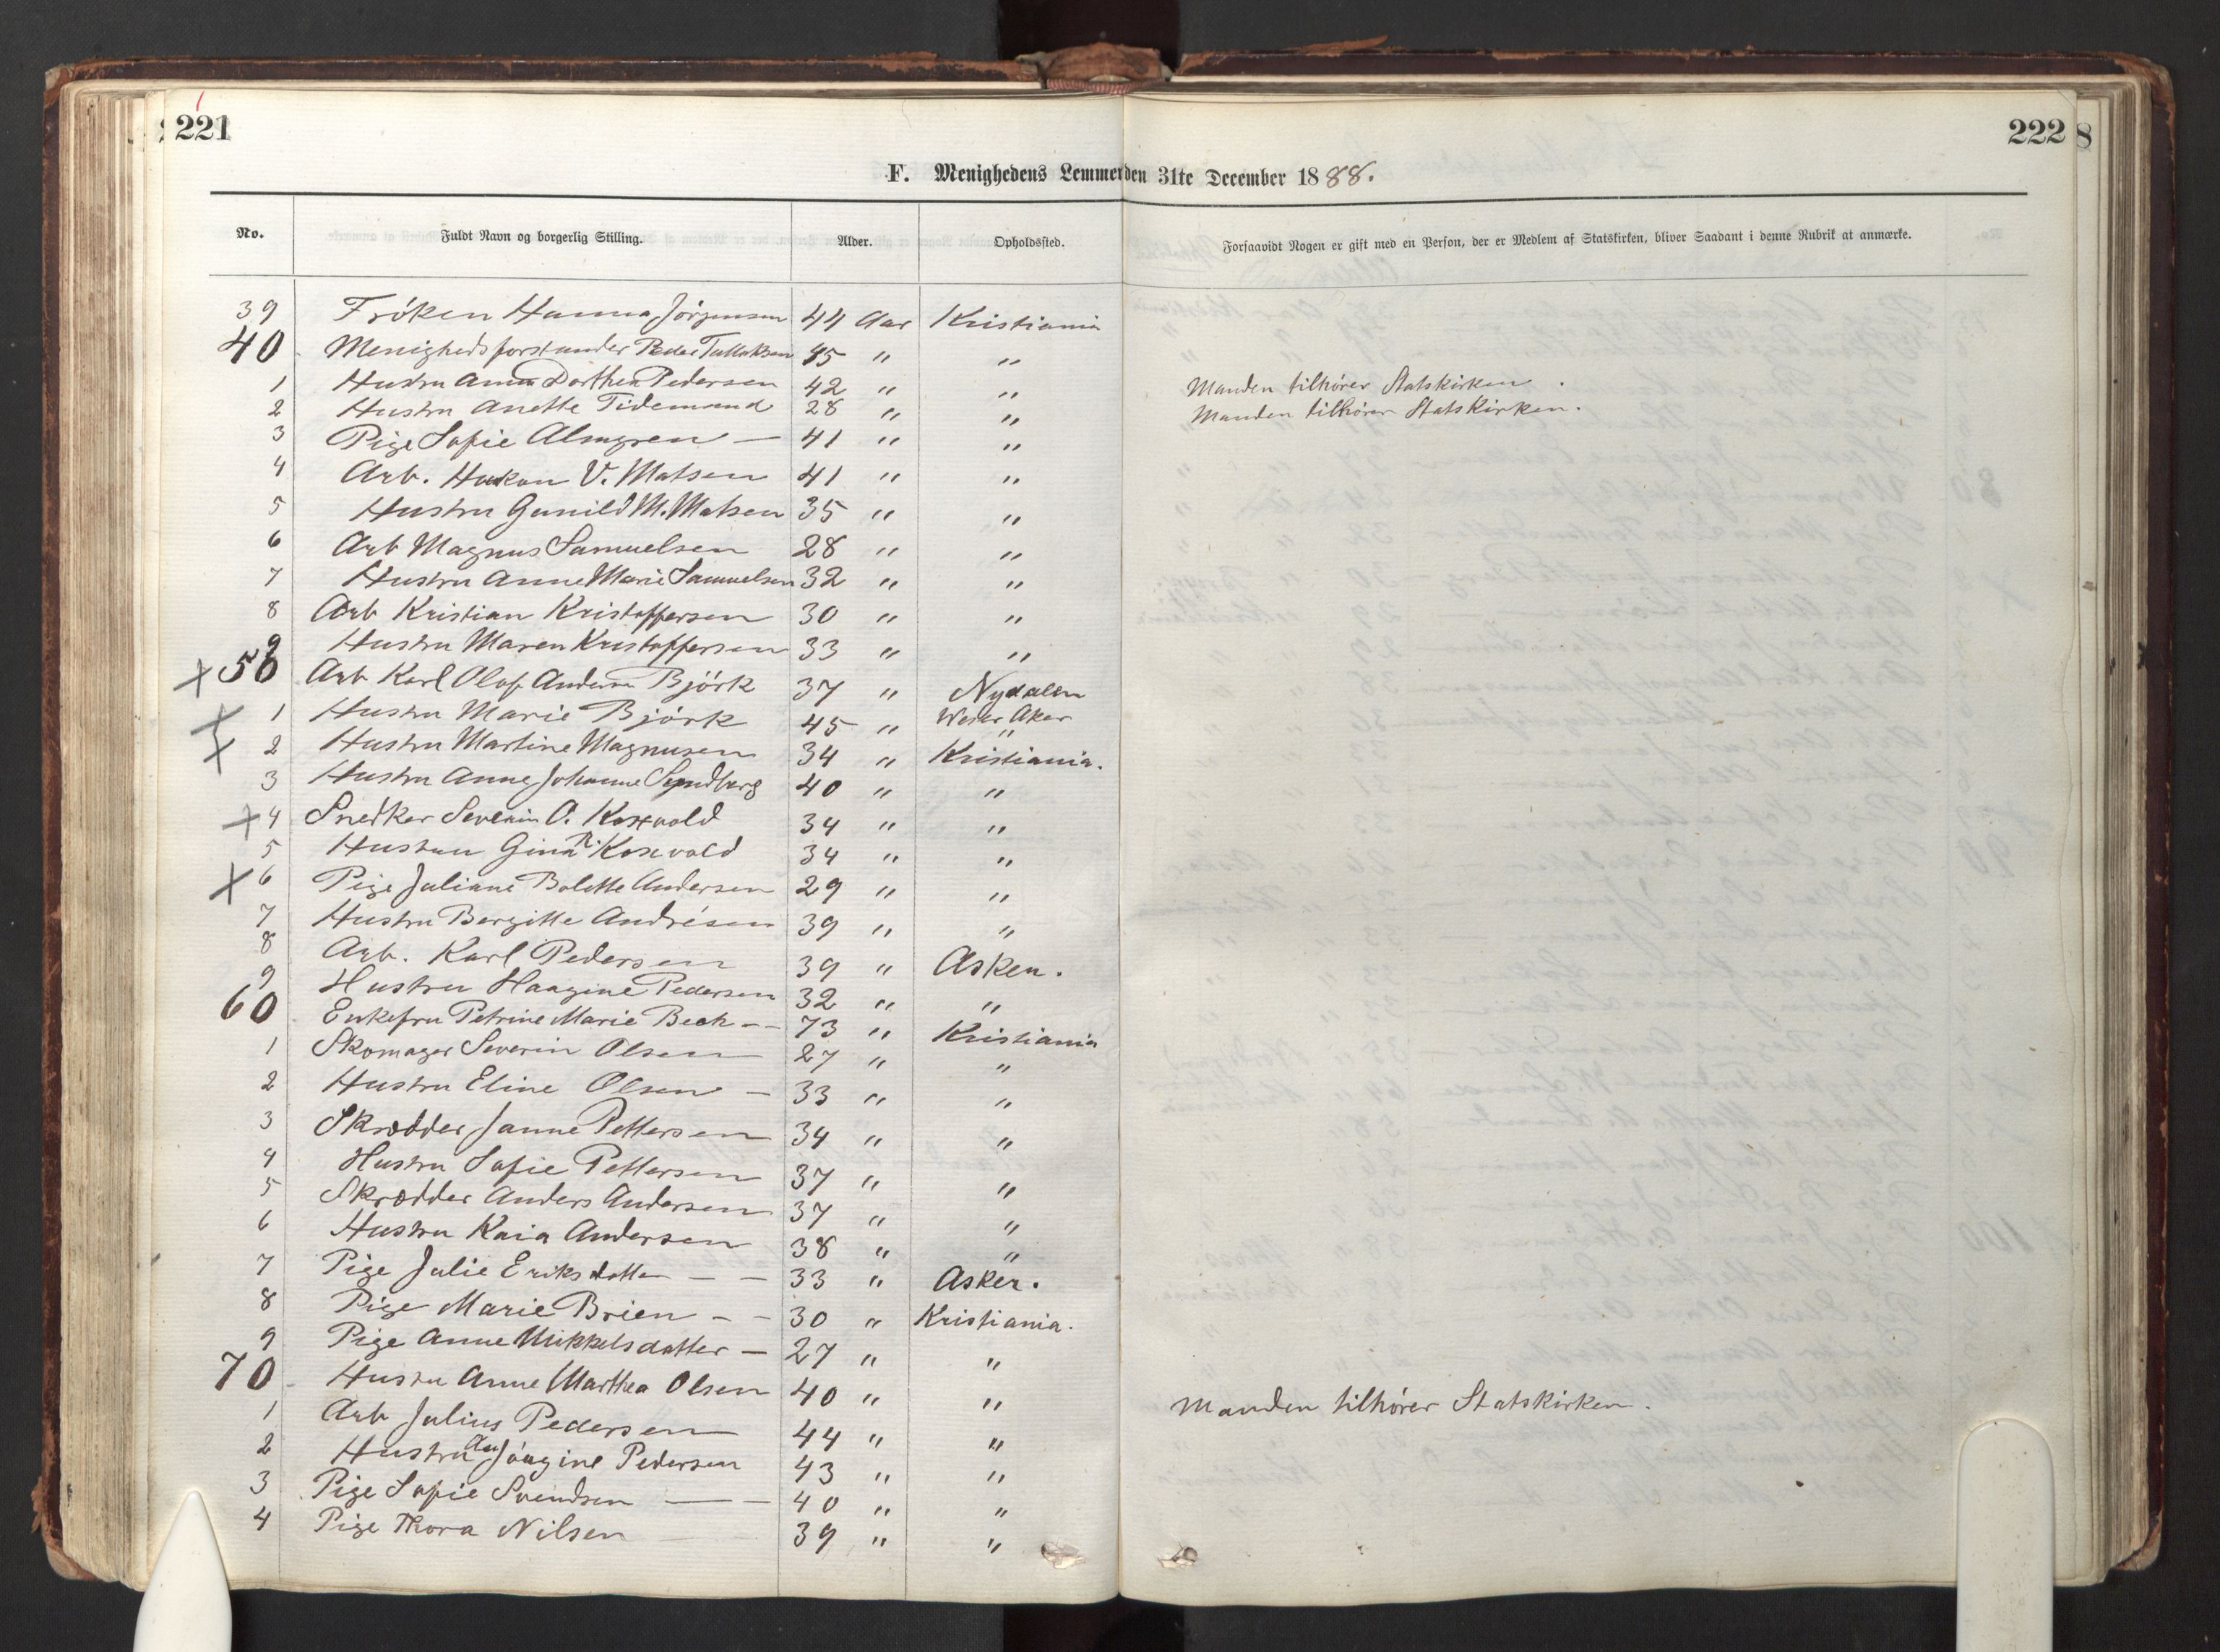 221
222
8
F. Menighedens Lemmer den 31te December 1888.
No. Fuldt Navn og borgerlig Stilling. Alder. Opholdssted. Forsaavidt Nogen er gift med en Person, der er Medlem af Statskirken, bliver Saadant i denne Rubrik at anmærke.
39 Frøken Hanna Jørgensen 44 Aar Kristiania
40 Menighedsforstander Peder Tallaksen 45 " "
1 Hustru Anna Dorthea Pedersen 42 " " Manden tilhører Statskirken.
2 Hustru Anette Tidemand 28 " " Manden tilhører Statskirken.
3 Pige Sofie Almgren — 41 " "
4 Arb. Hakon V. Matsen 41 " "
5 Hustru Gunild M. Matsen 35 " "
6 Arb Magnus Samuelsen 28 " "
7 Hustru Anne Marie Samuelsen 32 " "
8 Arb Kristian Kristoffersen 30 " "
9 Hustru Maren Kristoffersen 33 " "
x 50 Arb Karl Olof Björk 37 " Nydalen
x 1 Hustru Marie Björk 45 " Vester Aker
"
x 2 Hustru Martine Magnusen 34 " Kristiania.
3 Hustru Anne Johanne 40 " "
x 4 Snedker Severin O. 34 " "
5 Hustru Gina 34 " "
x 6 Pige Juliane Bolette Andersen 29 " "
7 Hustru Bergitte Andrésen 39 " "
8 Arb. Karl Pedersen 39 " Asken.
9 Hustru Haagine Pedersen 32 " "
60 Enkefru Petrine Marie Beck - - 73 " Kristiania
1 Skomager Severin Olsen 27 " "
2 Hustru Eline Olsen — 33 " "
3 Skrædder Janne Pettersen 34 " "
4 Hustru Sofie Pettersen 37 " "
5 Skrædder Anders Andersen 37 " "
6 Hustru Kaia Andersen 38 " "
7 Pige Julie Eriksdatter — — 33 " Asker.
8 Pige Marie Brien - - 30 " Kristiania.
9 Pige Anne Mikkelsdatter — 27 " "
70 Hustru Anne Marthea Olsen 40 " " Manden tilhører Statskirken.
1 Arb Julius Pedersen 44 " "
2 Hustru Jørgine Pedersen 43 " "
3 Pige Sofie Svendsen — — 40 " "
4 Pige Thora Nilsen 39 " "